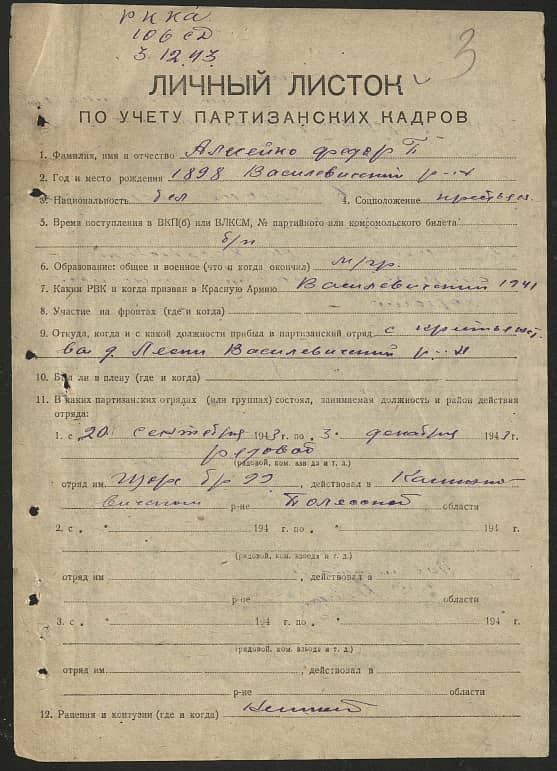 РККА
106 сд
3.12.43
3
ЛИЧНЫЙ ЛИСТОК
ПО УЧЕТУ ПАРТИЗАНСКИХ КАДРОВ
1. Фамилия, имя и отчество Алисейко Федор П
2. Год и место рождения 1898 Василевичский р-н
3. Национальность бел 4. Соцположение крестьян.
5. Время поступления в ВКП(б) или ВЛКСМ, № партийного или комсомольского билета
б/п
6. Образование: общее и военное (что и когда окончил) м/гр.
7. Каким РВК и когда призван в Красную Армию Василевичский 1941
8. Участие на фронтах (где и когда)
9. Откуда, когда и с какой должности прибыл в партизанский отряд с крестьянст
ва д. Василевичский р-н
10. Был ли в плену (где и когда)
11. В каких партизанских отрядах (или группах) состоял, занимаемая должность и район действия
отряда:
1. с „20 сентября 1943 г. по „3" декабря 1943 г.
рядовой
(рядовой, ком. взвода и т. д.)
отряд им Щорс бр 99, действовал в Калинко-
вичском р-не Полесской области
2. с „ " 194 г. по „ " 194 г.
(рядовой, ком. взвода и т. д.)
отряд им , действовал в
р-не области
3. с „ " 194 г. по „ " 194 г.
(рядовой, ком. взвода и т. д.)
отряд им , действовал в
р-не области
12. Ранения и контузии (где и когда)